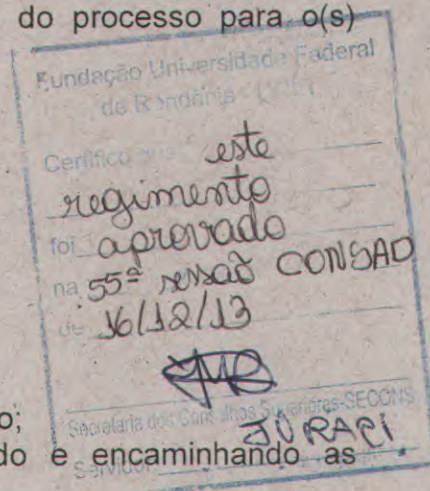 do processo para o(s)
Fundação Universidade Federal
de Rondônia -
Certifico que este
regimento
foi aprovado
na 55ª sessão CONSAD
de 16/12/13
o;
Secretaria dos Conselhos Superiores-SECONS
JURACI
do e encaminhando as
Servidor